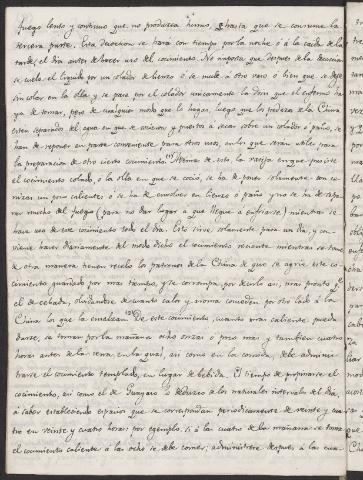 fuego lento y continuo que no produzca humo, hasta que se consuma la
tercera parte. Esta decoccion se hara con tiempo por la noche ó á la caida de la
tarde, el dia antes de hacer uso del cocimiento. No importa que despues de la decoccion
se cuele el liquido por un colador de lienzo ó se mude á otro vaso ó bien que se deje
sin colar en la olla y se pase por el colador unicamente la dosis que el enfermo ha-
ya de tomar, pero de cualquier modo que lo hagas, luego que los pedazos de la China
esten separados del agua en que se cocieron y puestos a secar sobre un colador ó paño, se
han de reponer en parte conveniente para otros usos, en los que seran utiles para
la preparacion de otro cierto cocimiento. Ademas de esto la vasija en que
el cocimiento colado, ó la olla en que se coció, se ha de poner solamente sobre ce-
nizas un poco calientes ó se ha de envolver en lienzo ó paño y no se ha de sepa-
rar mucho del fuego (para no dar lugar a que llegue a enfriarse) mientras se
hace uso de este cocimiento todo el dia. Esto sirve solamente para un dia, y con-
viene hacer diariamente del modo dicho el cocimiento reciente mientras se tome
de otra manera tienen recelo los patronos de la China de que se agrie este co-
cimiento guardado por mas tiempo, y se corrompa, por decirlo asi, mas pronto que
el de cebada, olvidandose de cuanto calor y aroma conceden por otro lado á la
China los que la ensalzan. De este cocimiento, cuanto mas caliente pueda
darse, se toman por la mañana ocho onzas ó poco mas y tambien cuatro
horas antes de la cena, en la cual, asi como en la comida, debe adminis-
trarse el cocimiento templado, en lugar de bebida. El tiempo de propinarse el
cocimiento, asi como el de Guayaco ó deducido a los naturales intervalos del dia,
a saber estableciendo espacios que se correspondan periodicamente de veinte y cua-
tro en veinte y cuatro horas: por ejemplo, si á las cuatro de la mañana se toma
el cocimiento caliente á las ocho se debe comer; administrese despues á las cua-